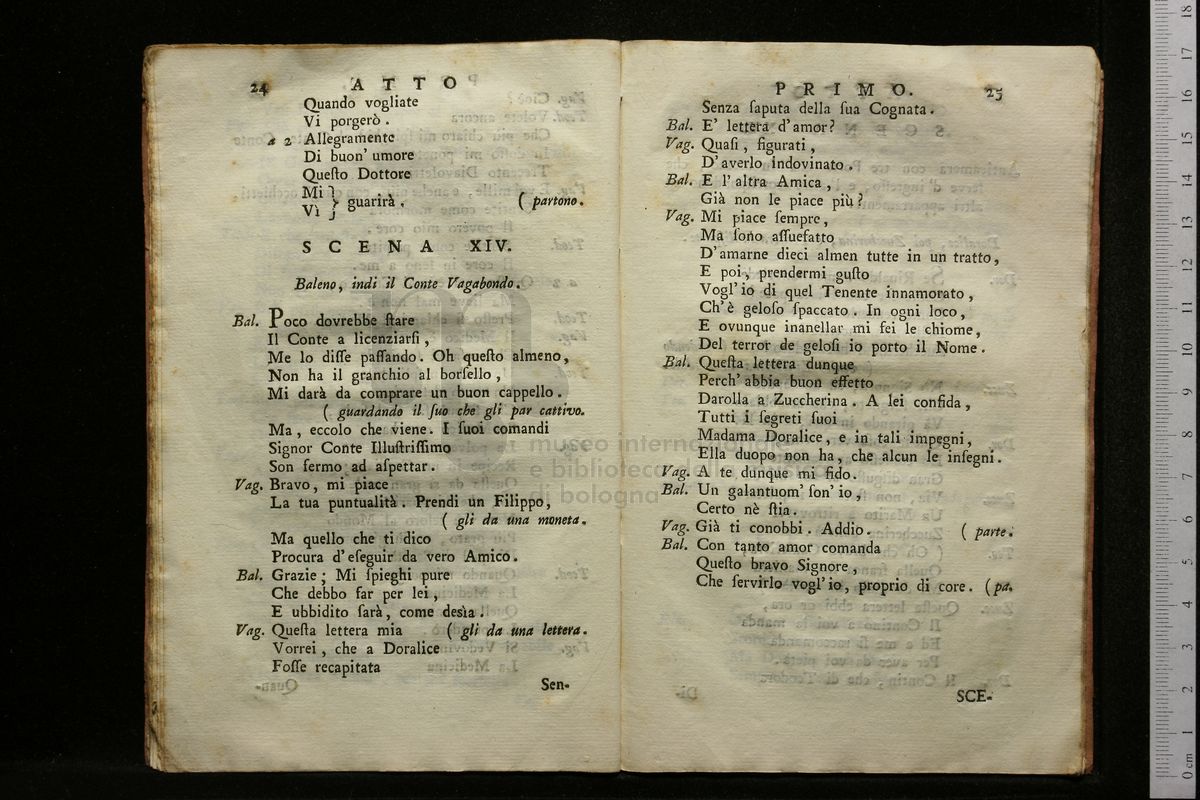 24 ATTO
Quando vogliate
Vi porgerò.
a 2 Allegramente
Di buon' umore
Queſto Dottore
Mi } guarirà. ( partono.
Vì
SCENA XIV.
Baleno, indi il Conte Vagabondo.
Bal. Poco dovrebbe ſtare
Il Conte a licenziarſi,
Me lo diſſe paſſando. Oh queſto almeno,
Non ha il granchio al borſello,
Mi darà da comprare un buon cappello.
( guardando il ſuo che gli par cattivo.
Ma, eccolo che viene. I ſuoi comandi
Signor Conte Illuſtriſſimo
Son fermo ad aſpettar.
Vag. Bravo, mi piace
La tua puntualità. Prendi un Filippo,
( gli da una moneta.
Ma quello che ti dico
Procura d'eſeguir da vero Amico.
Bal. Grazie; Mi ſpieghi pure
Che debbo far per lei,
E ubbidito ſarà, come desìa.
Vag. Queſta lettera mia ( gli da una lettera.
Vorrei, che a Doralice
Foſſe recapitata
Sen-
PRIMO. 25
Senza ſaputa della ſua Cognata.
Bal. E' lettera d'amor?
Vag. Quaſi, figurati,
D'averlo indovinato.
Bal. E l'altra Amica,
Già non le piace più?
Vag. Mi piace ſempre,
Ma ſono aſſuefatto
D'amarne dieci almen tutte in un tratto,
E poi, prendermi guſto
Vogl'io di quel Tenente innamorato,
Ch'è geloſo ſpaccato. In ogni loco,
E ovunque inanellar mi fei le chiome,
Del terror de geloſi io porto il Nome.
Bal. Queſta lettera dunque
Perch' abbia buon effetto
Darolla a Zuccherina. A lei confida,
Tutti i ſegreti ſuoi
Madama Doralice, e in tali impegni,
Ella duopo non ha, che alcun le inſegni.
Vag. A te dunque mi fido.
Bal. Un galantuom' ſon' io,
Certo nè ſtia.
Vag. Già ti conobbi. Addio. ( parte.
Bal. Con tanto amor comanda
Queſto bravo Signore,
Che ſervirlo vogl'io, proprio di core. (pa.
SCE-
museo internazionale
e biblioteca della musica
di bologna